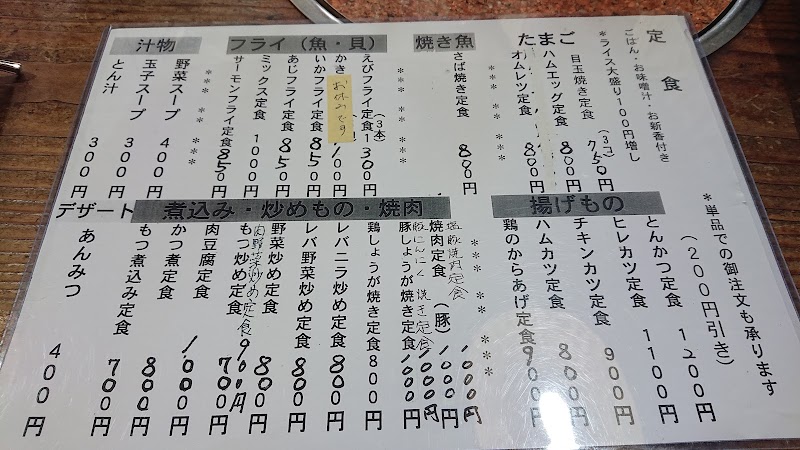 定食
ごはん・お味噌汁・お新香付き
*ライス大盛り100円増し
たまご
目玉焼き定食 (3コ) 750円
ハムエッグ定食 800円
オムレツ定食 800円
* * * * * *
焼き魚
さば焼き定食 800円
* * * * * *
フライ(魚・貝)
えびフライ定食 (3本) 1300円
かき
お休みです
いかフライ定食 850円
あじフライ定食 850円
ミックス定食 1000円
サーモンフライ定食 850円
* * * * * *
汁物
野菜スープ 400円
玉子スープ 300円
とん汁 300円
*単品での御注文も承ります
(200円引き)
揚げもの
とんかつ定食 1200円
ヒレカツ定食 1100円
チキンカツ定食 900円
ハムカツ定食 800円
鶏のからあげ定食 900円
* * * * * *
煮込み・炒めもの・焼肉
塩豚焼肉定食 1000円
焼肉定食 (豚) 1000円
豚にんにく焼き定食 1000円
豚しょうが焼き定食 1000円
鶏しょうが焼き定食 800円
レバニラ炒め定食 800円
レバ野菜炒め定食 800円
野菜炒め定食 800円
肉野菜炒め定食 900円
もつ炒め定食 700円
肉豆腐定食
かつ煮定食 1000円
もつ煮込み定食 800円
700円
デザート
あんみつ 400円